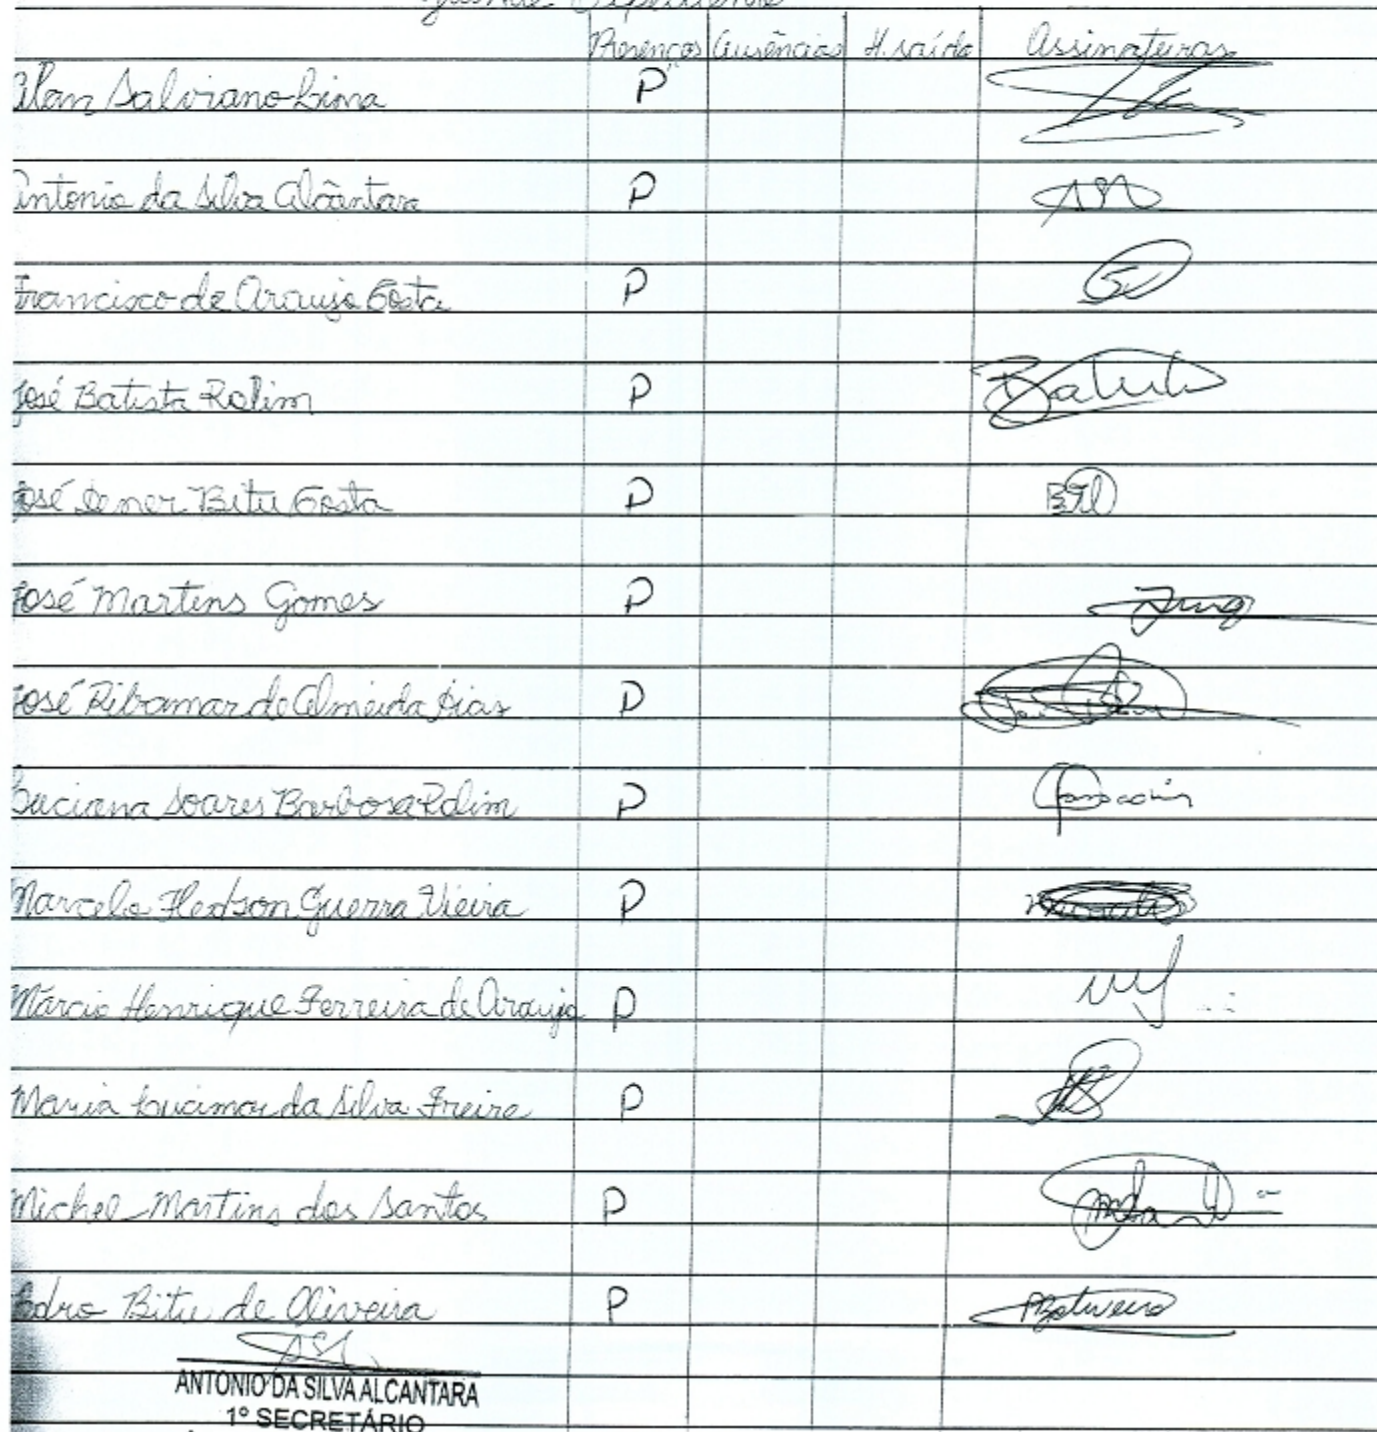 Grande Expediente
Presenças Ausências H. saída Assinaturas
Alan Salviano Lima P
Antonio da Silva Alcântara P
Francisco de Araujo Costa P
José Batista Rolim P Batista
José Dener Bitu Costa P
José Martins Gomes P
José Ribamar de Almeida Dias P
Luciana Soares Barbosa Rolim P
Marcelo Hedson Guerra Vieira P
Márcio Henrique Ferreira de Araujo P
Maria Lucimar da Silva Freire P
Michel Martins dos Santos P
Pedro Bitu de Oliveira P
ANTONIO DA SILVA ALCANTARA
1º SECRETÁRIO